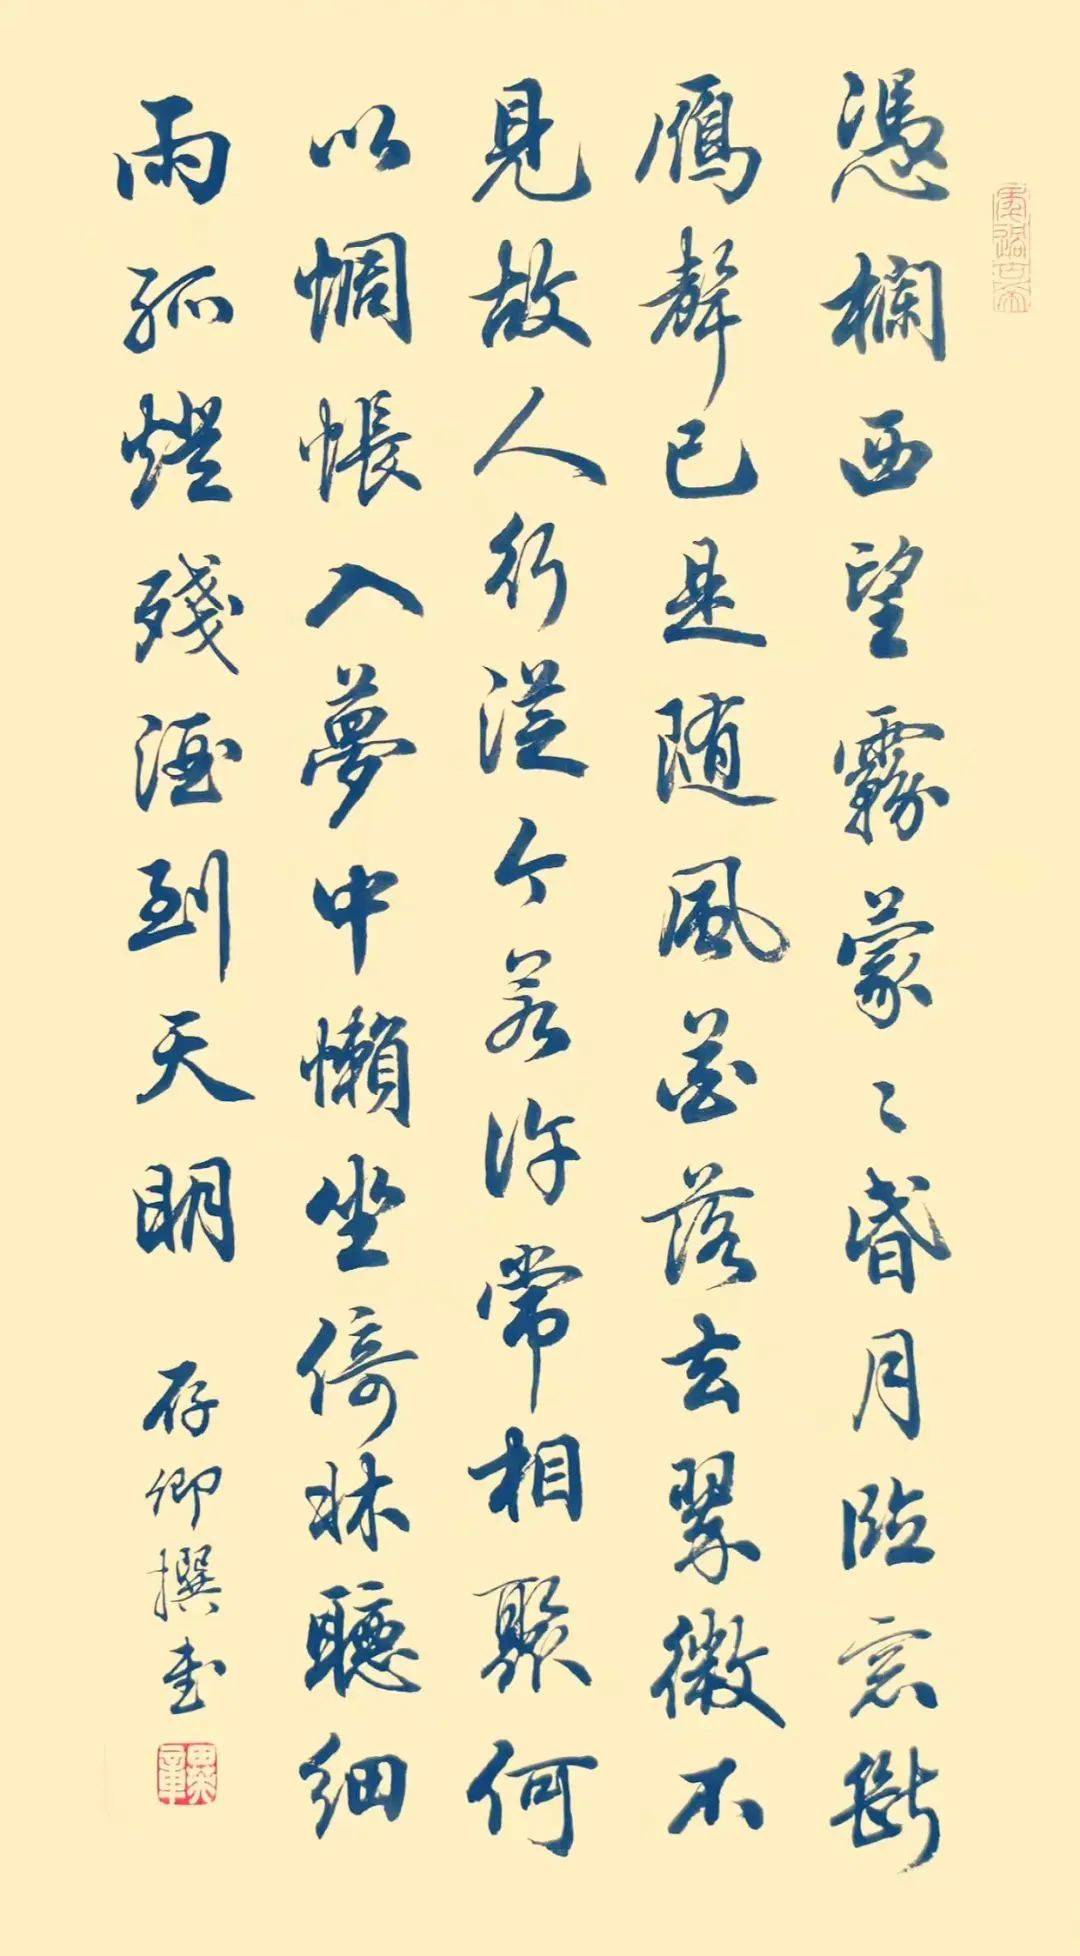 憑欄西望霧蒙〻昏月臨窓斷
鴈聲已是随風花落去翠微不
見故人行從今若許常相聚何
以惆悵入夢中懶坐倚牀聽細
雨孤燈殘酒到天明
存卿撰書